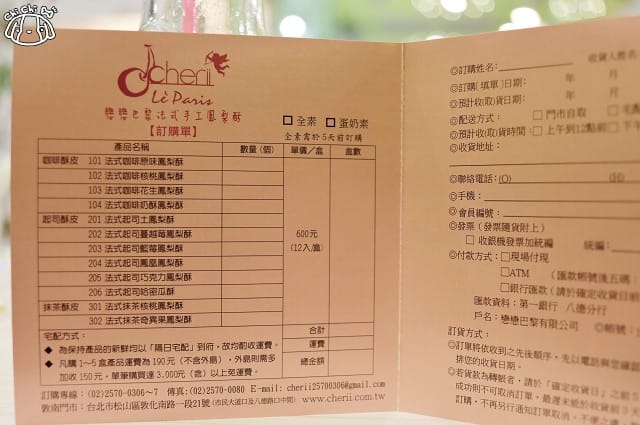 Chi Chi Bei
cherii
Lè Paris
戀戀巴黎法式手工鳳梨酥
【訂購單】
□ 全素 □ 蛋奶素
全素需於5天前訂購
產品名稱 數量(個) 單價／盒 盒數
咖啡酥皮 101 法式咖啡原味鳳梨酥
102 法式咖啡核桃鳳梨酥
103 法式咖啡花生鳳梨酥
104 法式咖啡奶酥鳳梨酥
起司酥皮 201 法式起司土鳳梨酥
202 法式起司蔓越莓鳳梨酥
203 法式起司藍莓鳳梨酥
204 法式起司鳳凰鳳梨酥
205 法式起司巧克力鳳梨酥
206 法式起司哈密瓜酥
抹茶酥皮 301 法式抹茶核桃鳳梨酥
302 法式抹茶奇異果鳳梨酥
600元
(12入/盒)
合計
運費
總金額
宅配方式：
◆ 為保持產品的新鮮均以「隔日宅配」到府，故均酌收運費。
◆ 凡購 1~5 盒產品運費為 190元（不含外島），外島則需多
加收 150元，單筆購買達 3,000元（含）以上免運費。
訂購專線：(02)2570-0306~7 傳真：(02)2570-0080 E-mail: cherii25700306@gmail.com
敦南門市：台北市松山區敦化南路一段21號（市民大道口及八德路口中間） www.cherii.com.tw
◎訂購姓名： 收貨人姓名
◎訂購[填單]日期： 年 月
◎預計收(取)貨日期： 年 月
◎配送方式： □ 門市自取 □ 宅配
◎預計收(取)貨時間：□ 上午到12點前 □ 下午
◎收貨地址：
◎聯絡電話：(O) (H)
◎手機：
◎會員編號：
◎發票（發票隨貨附上）
□ 收銀機發票加統編 統編：
◎付款方式：□現場付現
□ATM （匯款帳號後五碼：
□銀行匯款（請於確定收貨日前
匯款資料：第一銀行 八德分行
戶名：戀戀巴黎有限公司 ◎帳號：
訂貨方式：
◎訂單將依收到之先後順序，先以電話與您確認
排您的收貨日期。
◎若貨款為轉帳者，請於「確定收貨日」之前5
成功則不可取消訂單，最遲未能於收貨前3天
訂購，不再另行通知訂單取消，不便之處，